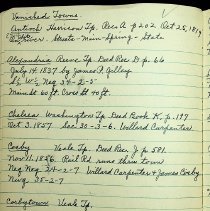 Vanished Towns
Antioch Harrison Tp. Rec A p 202 Oct 25, 1819
River. Streets - Main - Spring - State
Alexandria Reeve Tp. Deed Rec D p. 66
July 14, 1837 by James F Calley
S½ W½ Neg 34-2-5
Main St 60 ft Cross St 40 ft.
Chelsea Washington Tp Deed Book K, p. 197
Oct 3, 1857 Sec 30-3-6. Willard Carpenter
Cosby Veale Tp. Deed Rec J p 581.
Nov 11, 1856 Rail Rd. runs thru town
Neg Neg 24-2-7 Willard Carpenter & James Cosby
Nwq 25-2-7
Cosbytown Veale Tp.